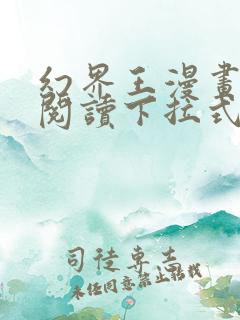 幻界王漫畫
閱讀下拉式
司徒專吉
未经同意禁止转载